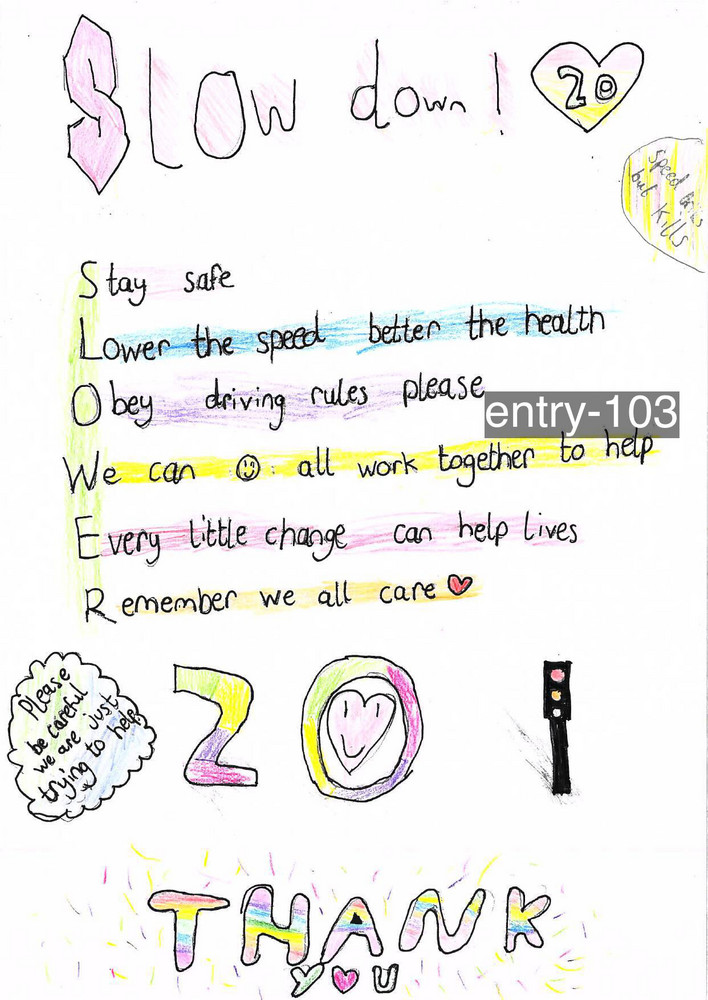 Slow down!
20
Speed
but Kills
Stay safe
Lower the speed better the health
Obey driving rules please
entry-103
We can all work together to help
Every little change can help lives
Remember we all care
Please
be careful
we are just
trying to help
20
THANK
you